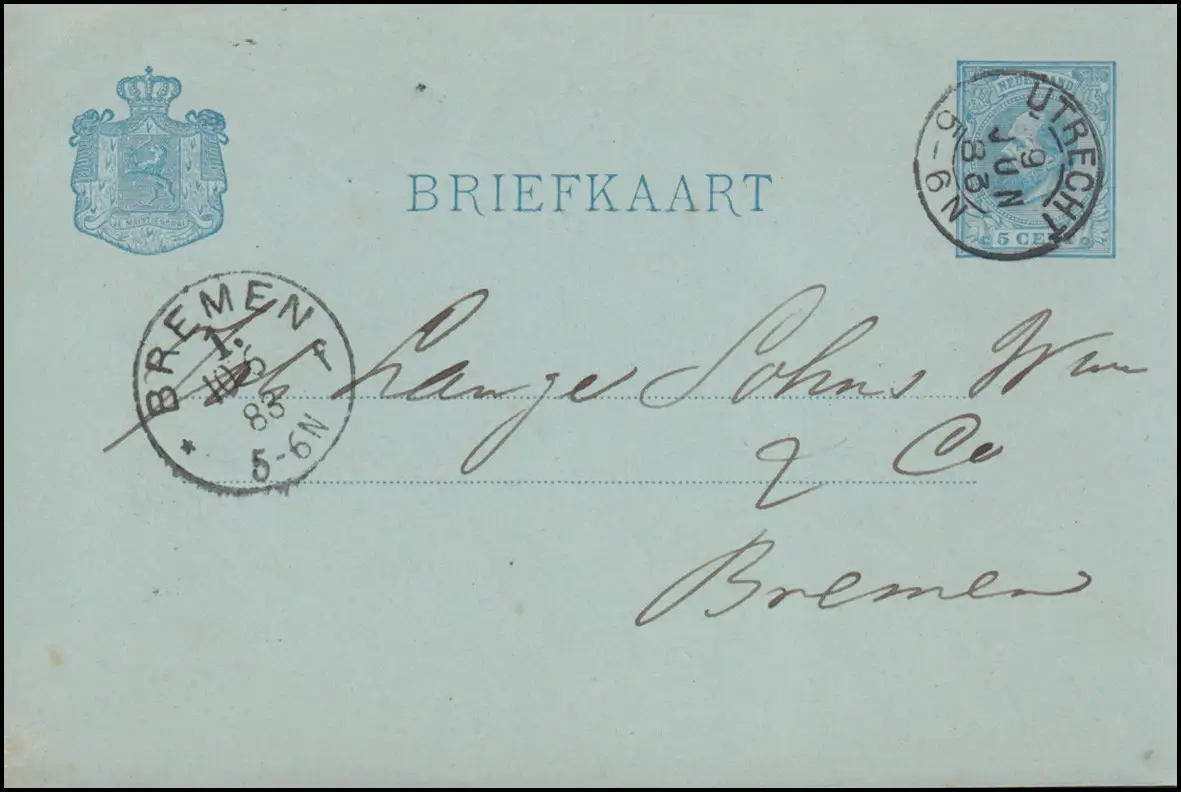 BRIEFKAART
NEDERLAND
5 CENT
UTRECHT
9
JUN
83
5-6N
JE MAINTIENDRAI
BREMEN
1.
10 6
83
5-6N
Joh Lange Sohns Wwe
& Co
Bremen